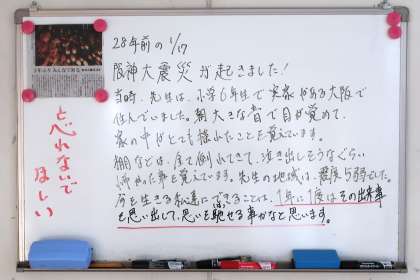 28年前の1/17
阪神大震災が起きました!
当時、先生は、小学6年生で実家がある大阪で
住んでいました。朝大きな音で目が覚めて、
家の中がとても揺れたことを覚えています。
棚などは、全て倒れてきて、泣き出しそうなぐらい
怖かった事を覚えています。先生の地域は、震度5弱でした。
今を生きる私達にできることは、1年に1度はその出来事
を思い出して、思いを馳せる事かなと思います。
忘れないで
ほしい